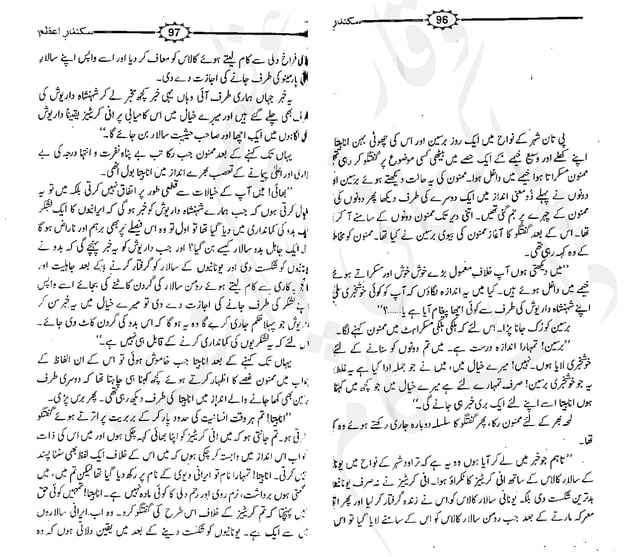 سکندرِ
96
پی تان شہر کے نواح میں ایک روز برسین اور اس کی چھوٹی بہن اناہیتا
اپنے کھلے اور وسیع خیمے کے ایک حصے میں بیٹھی کسی موضوع پر گفتگو کر رہی تھیں
ممنون مسکراتا ہوا خیمے میں داخل ہوا۔ ممنون کی یہ حالت دیکھتے ہوئے برسین
دونوں نے پہلے ذومعنی انداز میں ایک دوسرے کی طرف دیکھا پھر دونوں کی
ممنون کے چہرے پر جم گئی تھیں۔ اتنی دیر تک ممنون دونوں کے سامنے آ کر
تھا۔ اس کے بعد گفتگو کا آغاز ممنون کی بیوی برسین نے کیا۔ ممنون کو مخاطب
کے وہ کہہ رہی تھی۔
’’میں دیکھتی ہوں آپ خلاف معمول بڑے خوش خوش اور مسکراتے ہوئے
خیمے میں داخل ہوئے ہیں۔ کیا میں یہ اندازہ لگاؤں کہ آپ کو کوئی خوشخبری ملی
ہمارے شہنشاہ داریوش کی طرف سے کوئی اچھا پیغام آیا ہے یا.....؟‘‘
برسین کو رُک جانا پڑا۔ اس لئے کہ ہلکی ہلکی مسکراہٹ میں ممنون کہنے لگا۔
’’برسین! تمہارا اندازہ درست ہے۔ میں تم دونوں کو سنانے کے لئے
خوشخبری لایا ہوں۔ نہیں! میرے خیال میں، میں نے جو جملہ ادا کیا ہے یہ غلط
یہ جو خوشخبری برسین! صرف تمہارے لئے ہے میرے خیال میں جو کچھ میں کہنے
اناہیتا اسے اپنے لئے ایک بری خبر ہی جانے گی۔‘‘
لمحہ بھر کے لئے ممنون رکا، پھر گفتگو کا سلسلہ دوبارہ جاری رکھتے ہوئے وہ کہہ
تھا۔
’’تاہم جو خبر میں لے کر آیا ہوں وہ یہ ہے کہ تراود شہر کے نواح میں یونانیوں
کے سالار کالاس کے ساتھ انی کریٹیز کا ٹکراؤ ہوا۔ انی کریٹیز نے نہ صرف یونانیوں
بدترین شکست دی بلکہ یونانی سالار کالاس کو اس نے زندہ گرفتار کر لیا اور پھر
معرکہ مارنے کے بعد جب رومن سالار کالاس کو اس کے سامنے لایا گیا تو اس
97
سکندرِ اعظم
فراخ دلی سے کام لیتے ہوئے کالاس کو معاف کر دیا اور اسے واپس اپنے سالار
پارمینو کی طرف جانے کی اجازت دے دی۔
یہ خبر جہاں ہماری طرف آئی وہاں یہی خبر کچھ مخبر لے کر شہنشاہ داریوش کی
بھی چلے گئے ہیں اور میرے خیال میں اس کامیابی پر انی کریٹیز یقیناً داریوش کی
نگاہوں میں ایک اچھا اور صاحب حیثیت سالار بن جائے گا۔‘‘
یہاں تک کہنے کے بعد ممنون جب رکا تب بے پناہ نفرت و انتہا درجہ کی بے
اور اعلیٰ پیمانے کے تعصب بھرے انداز میں اناہیتا بول اٹھی۔
’’بھائی! میں آپ کے خیالات سے قطعی طور پر اتفاق نہیں کرتی بلکہ میں تو یہ
کرتی ہوں کہ جب ہمارے شہنشاہ داریوش کو خبر ہو گی کہ ایرانیوں کا ایک لشکر
بدو کی کمانداری میں دیا گیا تھا تو اول تو وہ اس فیصلے پر ہی برہم اور ناراض ہو گا
ایک جاہل بدو سالار کیسے بن گیا؟ اور جب داریوش کو یہ خبر پہنچے گی کہ بدو نے
کو شکست دی اور یونانیوں کے سالار کو گرفتار کرنے کے بعد جاہلیت اور
سے کام لیتے ہوئے رومن سالار کی گردن کاٹنے کی بجائے اسے واپس
لشکر کی طرف جانے کی اجازت دے دی تو میرے خیال میں یہ خبر سن کر
جو پہلا حکم جاری کرے گا وہ یہ ہو گا کہ اس بدو کی گردن کاٹ دی جائے۔
لئے کہ یہ لشکریوں کی کمانداری کرنے کے قابل ہی نہیں ہے۔‘‘
یہاں تک کہنے کے بعد اناہیتا جب خاموش ہوئی تو اس کے ان الفاظ کے
جواب میں ممنون غصے کا اظہار کرتے ہوئے کچھ کہنا ہی چاہتا تھا کہ دوسری طرف
برسین بھی کھا جانے والے انداز میں اناہیتا کی طرف دیکھتی تھی۔ پھر برس پڑی۔
’’اناہیتا! تم ہر وقت انسانیت کی حدود پار کر کے بربریت پر اترتے ہوئے گفتگو
ہو۔ تم جانتی ہو کہ میں انی کریٹیز کو اپنا بھائی کہہ چکی ہوں اور میں اس کی ذات
کو اپنے ساتھ وابستہ کر چکی ہوں۔ میں اس کے خلاف ایک لفظ بھی سننا پسند
نہیں کرتی۔ اناہیتا! تمہارا نام تو ایرانی دیوی کے نام پر رکھ دیا گیا تھا لیکن تم میں، میں
سمجھتی ہوں برداشت، نرم روی اور رحم دلی کا کوئی مادہ نہیں ہے۔ اناہیتا! تمہیں کوئی حق
نہیں پہنچتا کہ تم کریٹیز کے خلاف اس طرح کی گفتگو کرو۔ وہ اب ایرانی سالاروں
میں ہے۔ یونانیوں کو شکست دینے کے بعد میں یقین دلاتی ہوں کہ وہ